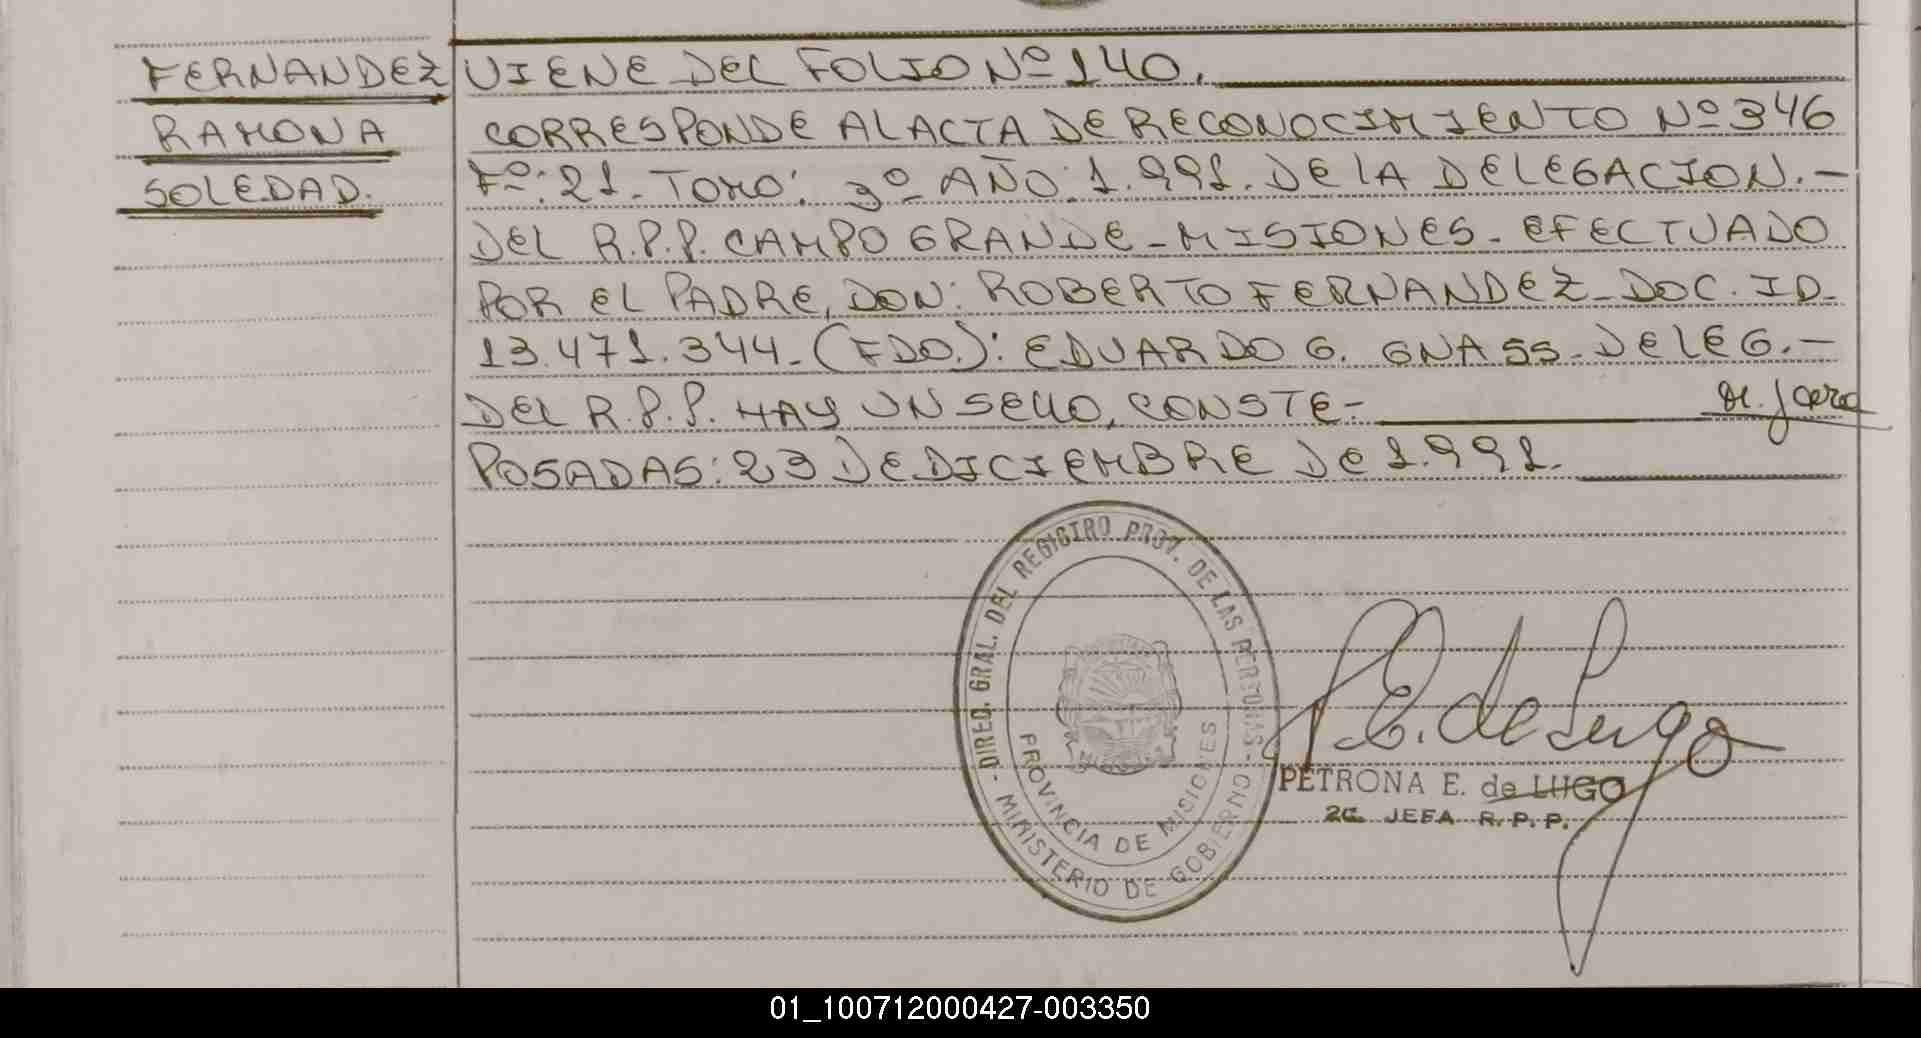 FERNANDEZ
RAMONA
SOLEDAD.
VIENE DEL FOLIO Nº 140.
CORRESPONDE AL ACTA DE RECONOCIMIENTO Nº 346
Fº: 21 - TOMO: 3º AÑO: 1.991. DE LA DELEGACION. -
DEL R.P.P. CAMPO GRANDE - MISIONES - EFECTUADO
POR EL PADRE, DON: ROBERTO FERNANDEZ - DOC. ID.
13.471.344 - (FDO.): EDUARDO G. GNASS - DELEG. -
DEL R.P.P. HAY UN SELLO, CONSTE -
POSADAS: 23 DE DICIEMBRE DE 1.991.
- DIREC. GRAL. DEL REGISTRO PROV. DE LAS PERSONAS -
MINISTERIO DE GOBIERNO
PROVINCIA DE MISIONES
MISIONES
P.E. de Lugo
PETRONA E. de LUGO
2a. JEFA R. P. P.
01_100712000427-003350